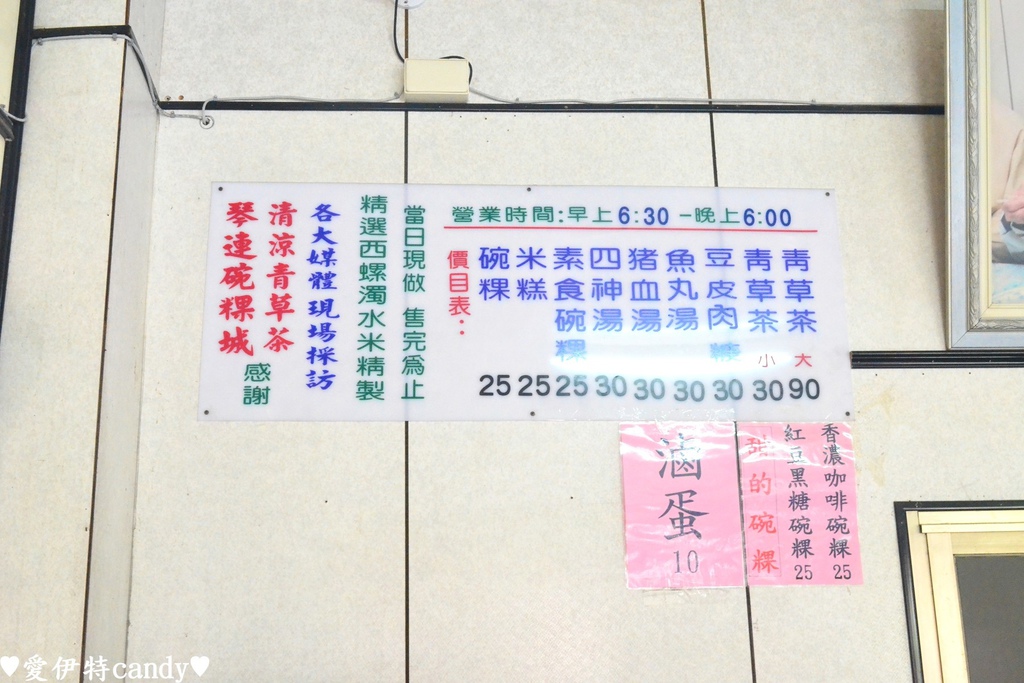 營業時間:早上6:30 -晚上6:00
青草茶 大 90
青草茶 小 30
豆皮肉糠 30
魚丸湯 30
猪血湯 30
四神湯 30
素食碗粿 25
米糕 25
碗粿 25
價目表:
當日現做 售完為止
精選西螺濁水米精製
各大媒體現場採訪
清涼青草茶
琴連碗粿城
感謝
香濃咖啡碗粿25
紅豆黑糖碗粿25
甜的碗粿
滷蛋10
♥愛伊特candy♥